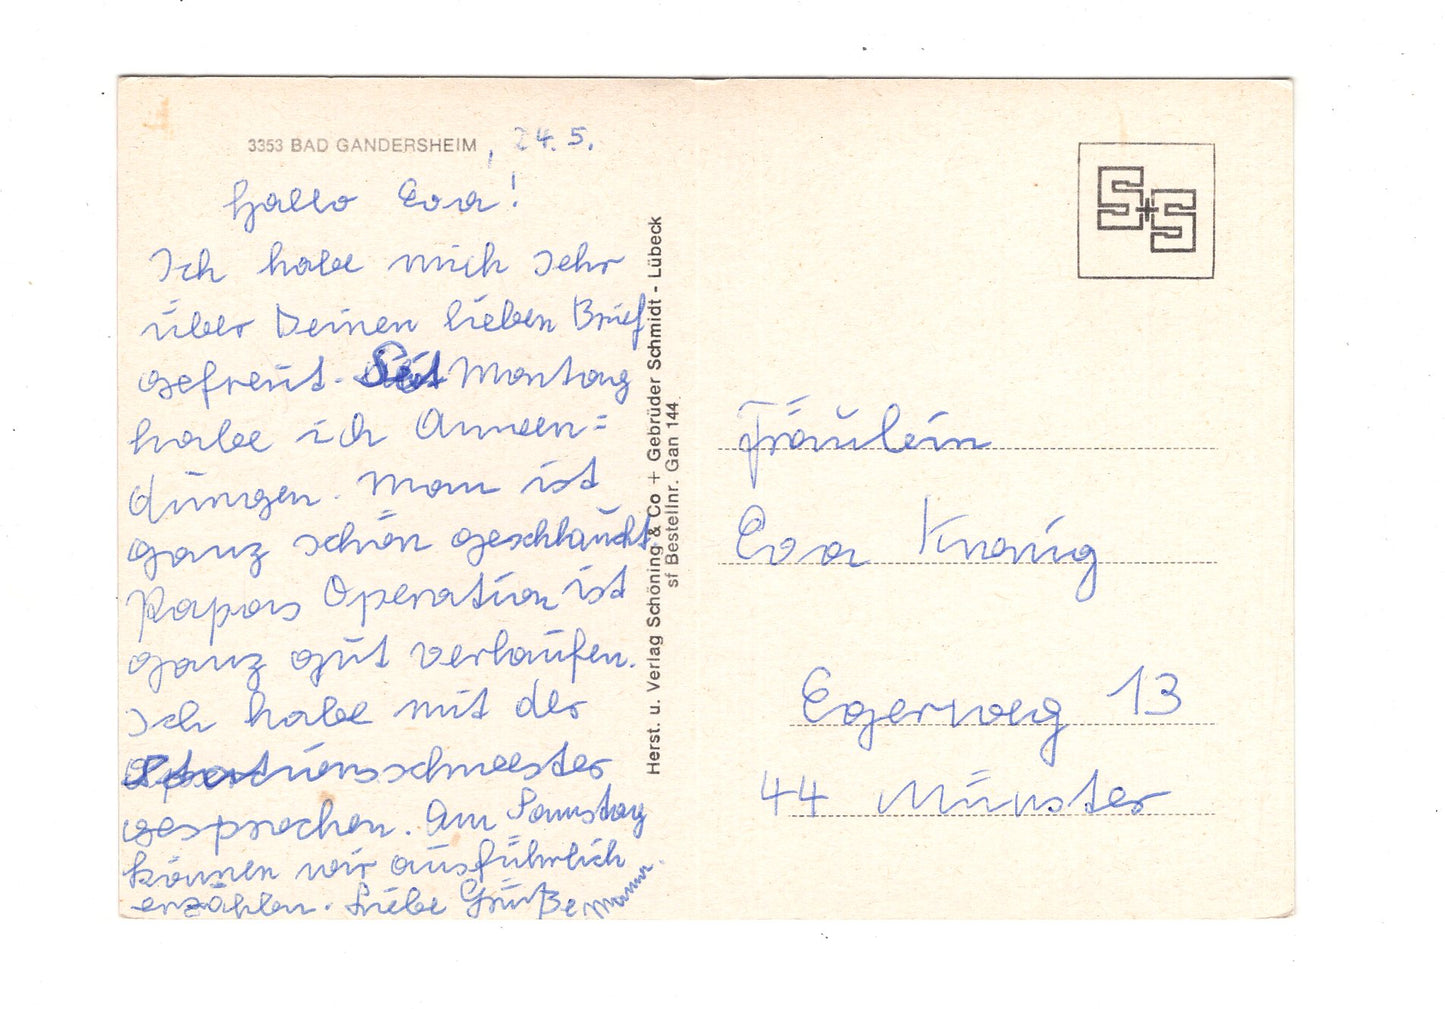 3353 BAD GANDERSHEIM, 24. 5.
Hallo Eva!
Ich habe mich sehr
über Deinen lieben Brief
gefreut. Seit Montag
habe ich Anwen=
dungen. Man ist
ganz schön geschlaucht
Papas Operation ist
ganz gut verlaufen.
Ich habe mit der
schwester
gesprochen. Am Samstag
können wir ausführlich
erzählen. Liebe Grüße
Herst. u. Verlag Schöning & Co + Gebrüder Schmidt - Lübeck
sf Bestellnr. Gan 144
S+S
Fräulein
Eva
Egerweg 13
44 Münster